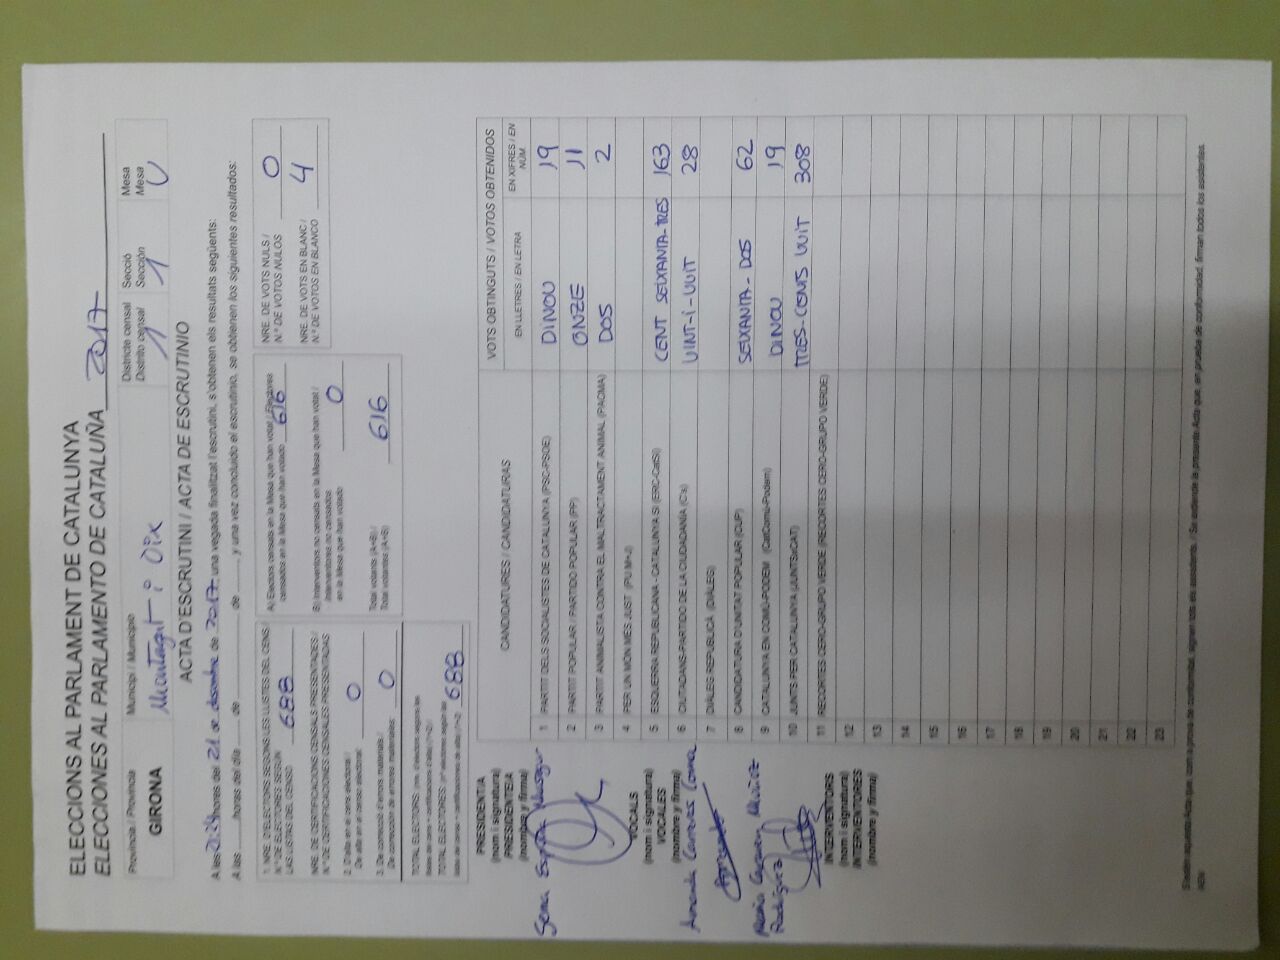 ELECCIONS AL PARLAMENT DE CATALUNYA
ELECCIONES AL PARLAMENTO DE CATALUÑA 2017
Província / Provincia
GIRONA
Municipi / Municipio
Montagut i Oix
Districte censal
Distrito censal
1
Secció
Sección
1
Mesa
Mesa
U
ACTA D'ESCRUTINI / ACTA DE ESCRUTINIO
A les 21:24 hores del 21 de desembre de 2017 una vegada finalitzat l'escrutini, s'obtenen els resultats següents:
A las horas del día de de y una vez concluido el escrutinio, se obtienen los siguientes resultados:
1. NRE. D'ELECTORS SEGONS LES LLISTES DEL CENS /
N.º DE ELECTORES SEGÚN
LAS LISTAS DEL CENSO 688
NRE. DE CERTIFICACIONS CENSALS PRESENTADES /
N.º DE CERTIFICACIONES CENSALES PRESENTADAS
2. D'alta en el cens electoral /
De alta en el censo electoral: 0
3. De correcció d'errors materials /
De corrección de errores materiales: 0
TOTAL ELECTORS: (nre. d'electors segons les
TOTAL ELECTORES: (nº electores según las 688
A) Electors censats en la Mesa que han votat / Electores
censados en la Mesa que han votado 616
B) Interventors no censats en la Mesa que han votat /
Interventores no censados
en la Mesa que han votado 0
Total votants (A+B) /
Total votantes (A+B) 616
NRE. DE VOTS NULS /
N.º DE VOTOS NULOS 0
NRE. DE VOTS EN BLANC /
N.º DE VOTOS EN BLANCO 4
CANDIDATURES / CANDIDATURAS
VOTS OBTINGUTS / VOTOS OBTENIDOS
EN LLETRES / EN LETRA
EN XIFRES / EN NÚM.
1 PARTIT DELS SOCIALISTES DE CATALUNYA (PSC-PSOE) DINOU 19
2 PARTIT POPULAR / PARTIDO POPULAR (PP) ONZE 11
3 PARTIT ANIMALISTA CONTRA EL MALTRACTAMENT ANIMAL (PACMA) DOS 2
4 PER UN MÓN MÉS JUST (PUM+J)
5 ESQUERRA REPUBLICANA - CATALUNYA SÍ (ERC-CatSí) CENT SEIXANTA-TRES 163
6 CIUTADANS-PARTIDO DE LA CIUDADANÍA (C's) VINT-I-VUIT 28
7 DIÀLEG REPUBLICÀ (DIÀLEG)
8 CANDIDATURA D'UNITAT POPULAR (CUP) SEIXANTA-DOS 62
9 CATALUNYA EN COMÚ-PODEM (CatComú-Podem) DINOU 19
10 JUNTS PER CATALUNYA (JUNTSxCAT) TRES-CENTS VUIT 308
11 RECORTES CERO-GRUPO VERDE (RECORTES CERO-GRUPO VERDE)
12
13
14
15
16
17
18
19
20
21
22
23
PRESIDÈNTIA
(nom i signatura)
PRESIDENTE/A
(nombre y firma)
Gema
VOCALS
(nom i signatura)
VOCALES
(nombre y firma)
Amanda Carreras
Rodríguez
INTERVENTORS
(nom i signatura)
INTERVENTORES
(nombre y firma)
S'estén aquesta Acta que, com a prova de conformitat, signen tots els assistents. / Se extiende la presente Acta que, en prueba de conformidad, firman todos los asistentes.